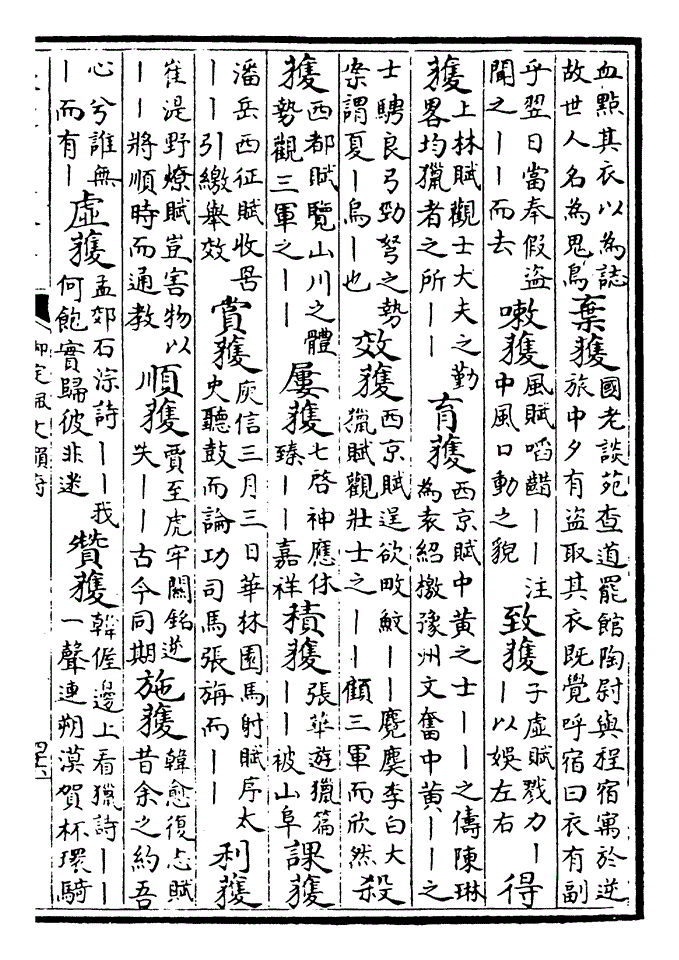 血點其衣以為誌
故世人名為鬼鳥
棄獲
國老談苑查道罷館陶尉與程宿寓於逆
旅中夕有盜取其衣既覺呼宿曰衣有副
乎翌日當奉假盜
聞之丨丨而去
嗽獲
風賦啗齰丨丨注
中風口動之貌
致獲
子虛賦戮力丨
丨以娛左右
得
獲
上林賦觀士大夫之勤
畧均獵者之所丨丨
育獲
西京賦中黃之士丨丨之儔陳琳
為袁紹檄豫州文奮中黃丨丨之
士騁良弓勁弩之勢
案謂夏丨烏丨也
效獲
西京賦逞欲畋魰丨丨麑麌李白大
獵賦觀壯士之丨丨顧三軍而欣然
殺
獲
西都賦覽山川之體
勢觀三軍之丨丨
屢獲
七啓神應休
臻丨丨嘉祥
積獲
張華遊獵篇
丨丨被山阜
課獲
潘岳西征賦收罟
丨丨引繳舉效
賞獲
庾信三月三日華林園馬射賦序太
史聽鼓而論功司馬張旃而丨丨
利獲
崔湜野燎賦豈害物以
丨丨將順時而通教
順獲
賈至虎牢關銘逆
失丨丨古今同期
施獲
韓愈復志賦
昔余之約吾
心兮誰無
丨而有丨
虛獲
孟郊石淙詩丨丨我
何飽實歸彼非迷
贊獲
韓偓邊上看獵詩丨丨
一聲連朔漠賀杯環騎
御定佩文韻府